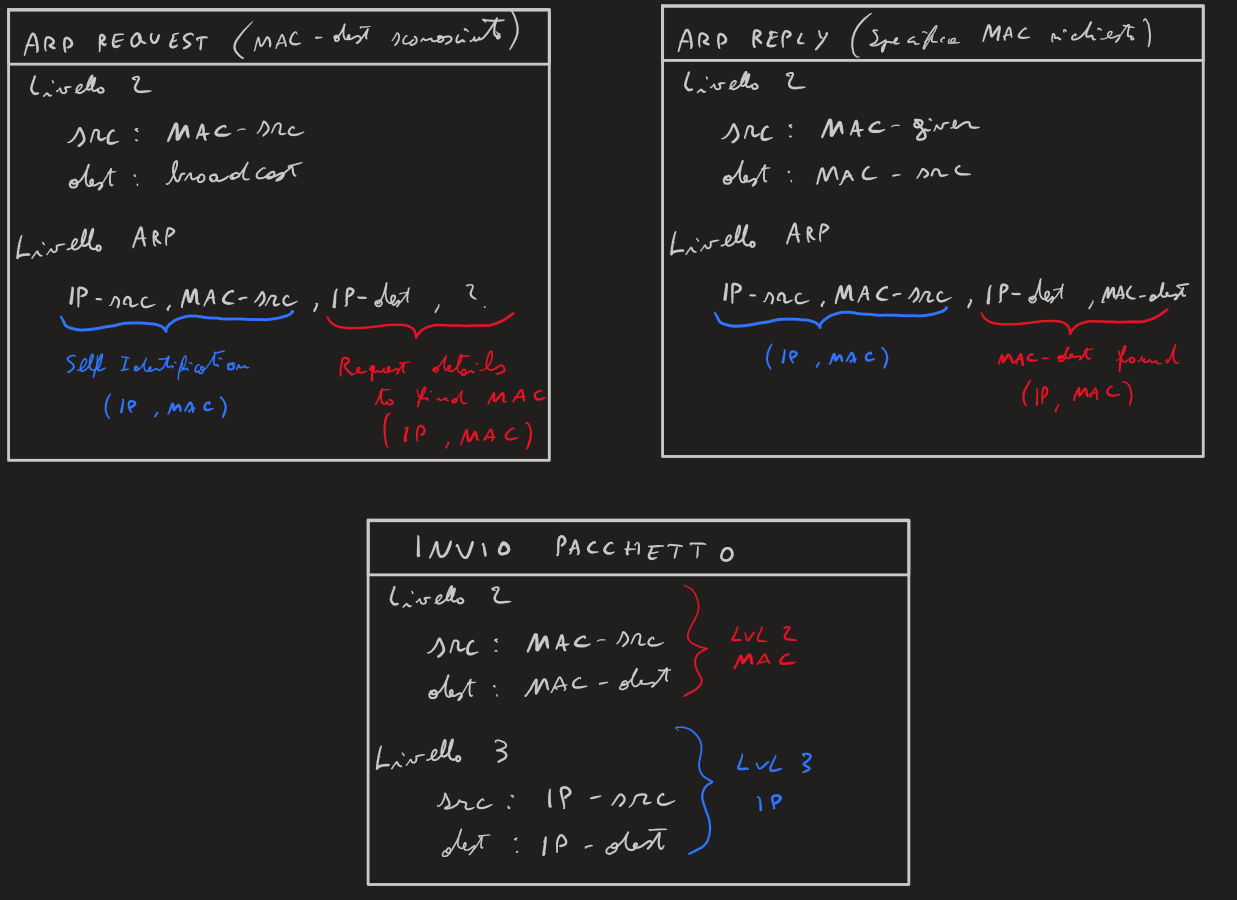 ARP REQUEST (MAC-dest sconosciuto)
Livello 2
src : MAC-src
dest : broadcast
Livello ARP
IP-src, MAC-src, IP-dest, ?
Self Identification
(IP, MAC)
Request details
to find MAC
(IP, MAC)
ARP REPLY (Specifica MAC richiesto)
Livello 2
src : MAC-given
dest : MAC-src
Livello ARP
IP-src, MAC-src, IP-dest, MAC-dest
(IP, MAC)
MAC-dest found
(IP, MAC)
INVIO PACCHETTO
Livello 2
src : MAC-src
dest : MAC-dest
LVL 2
MAC
Livello 3
src : IP-src
dest : IP-dest
LVL 3
IP